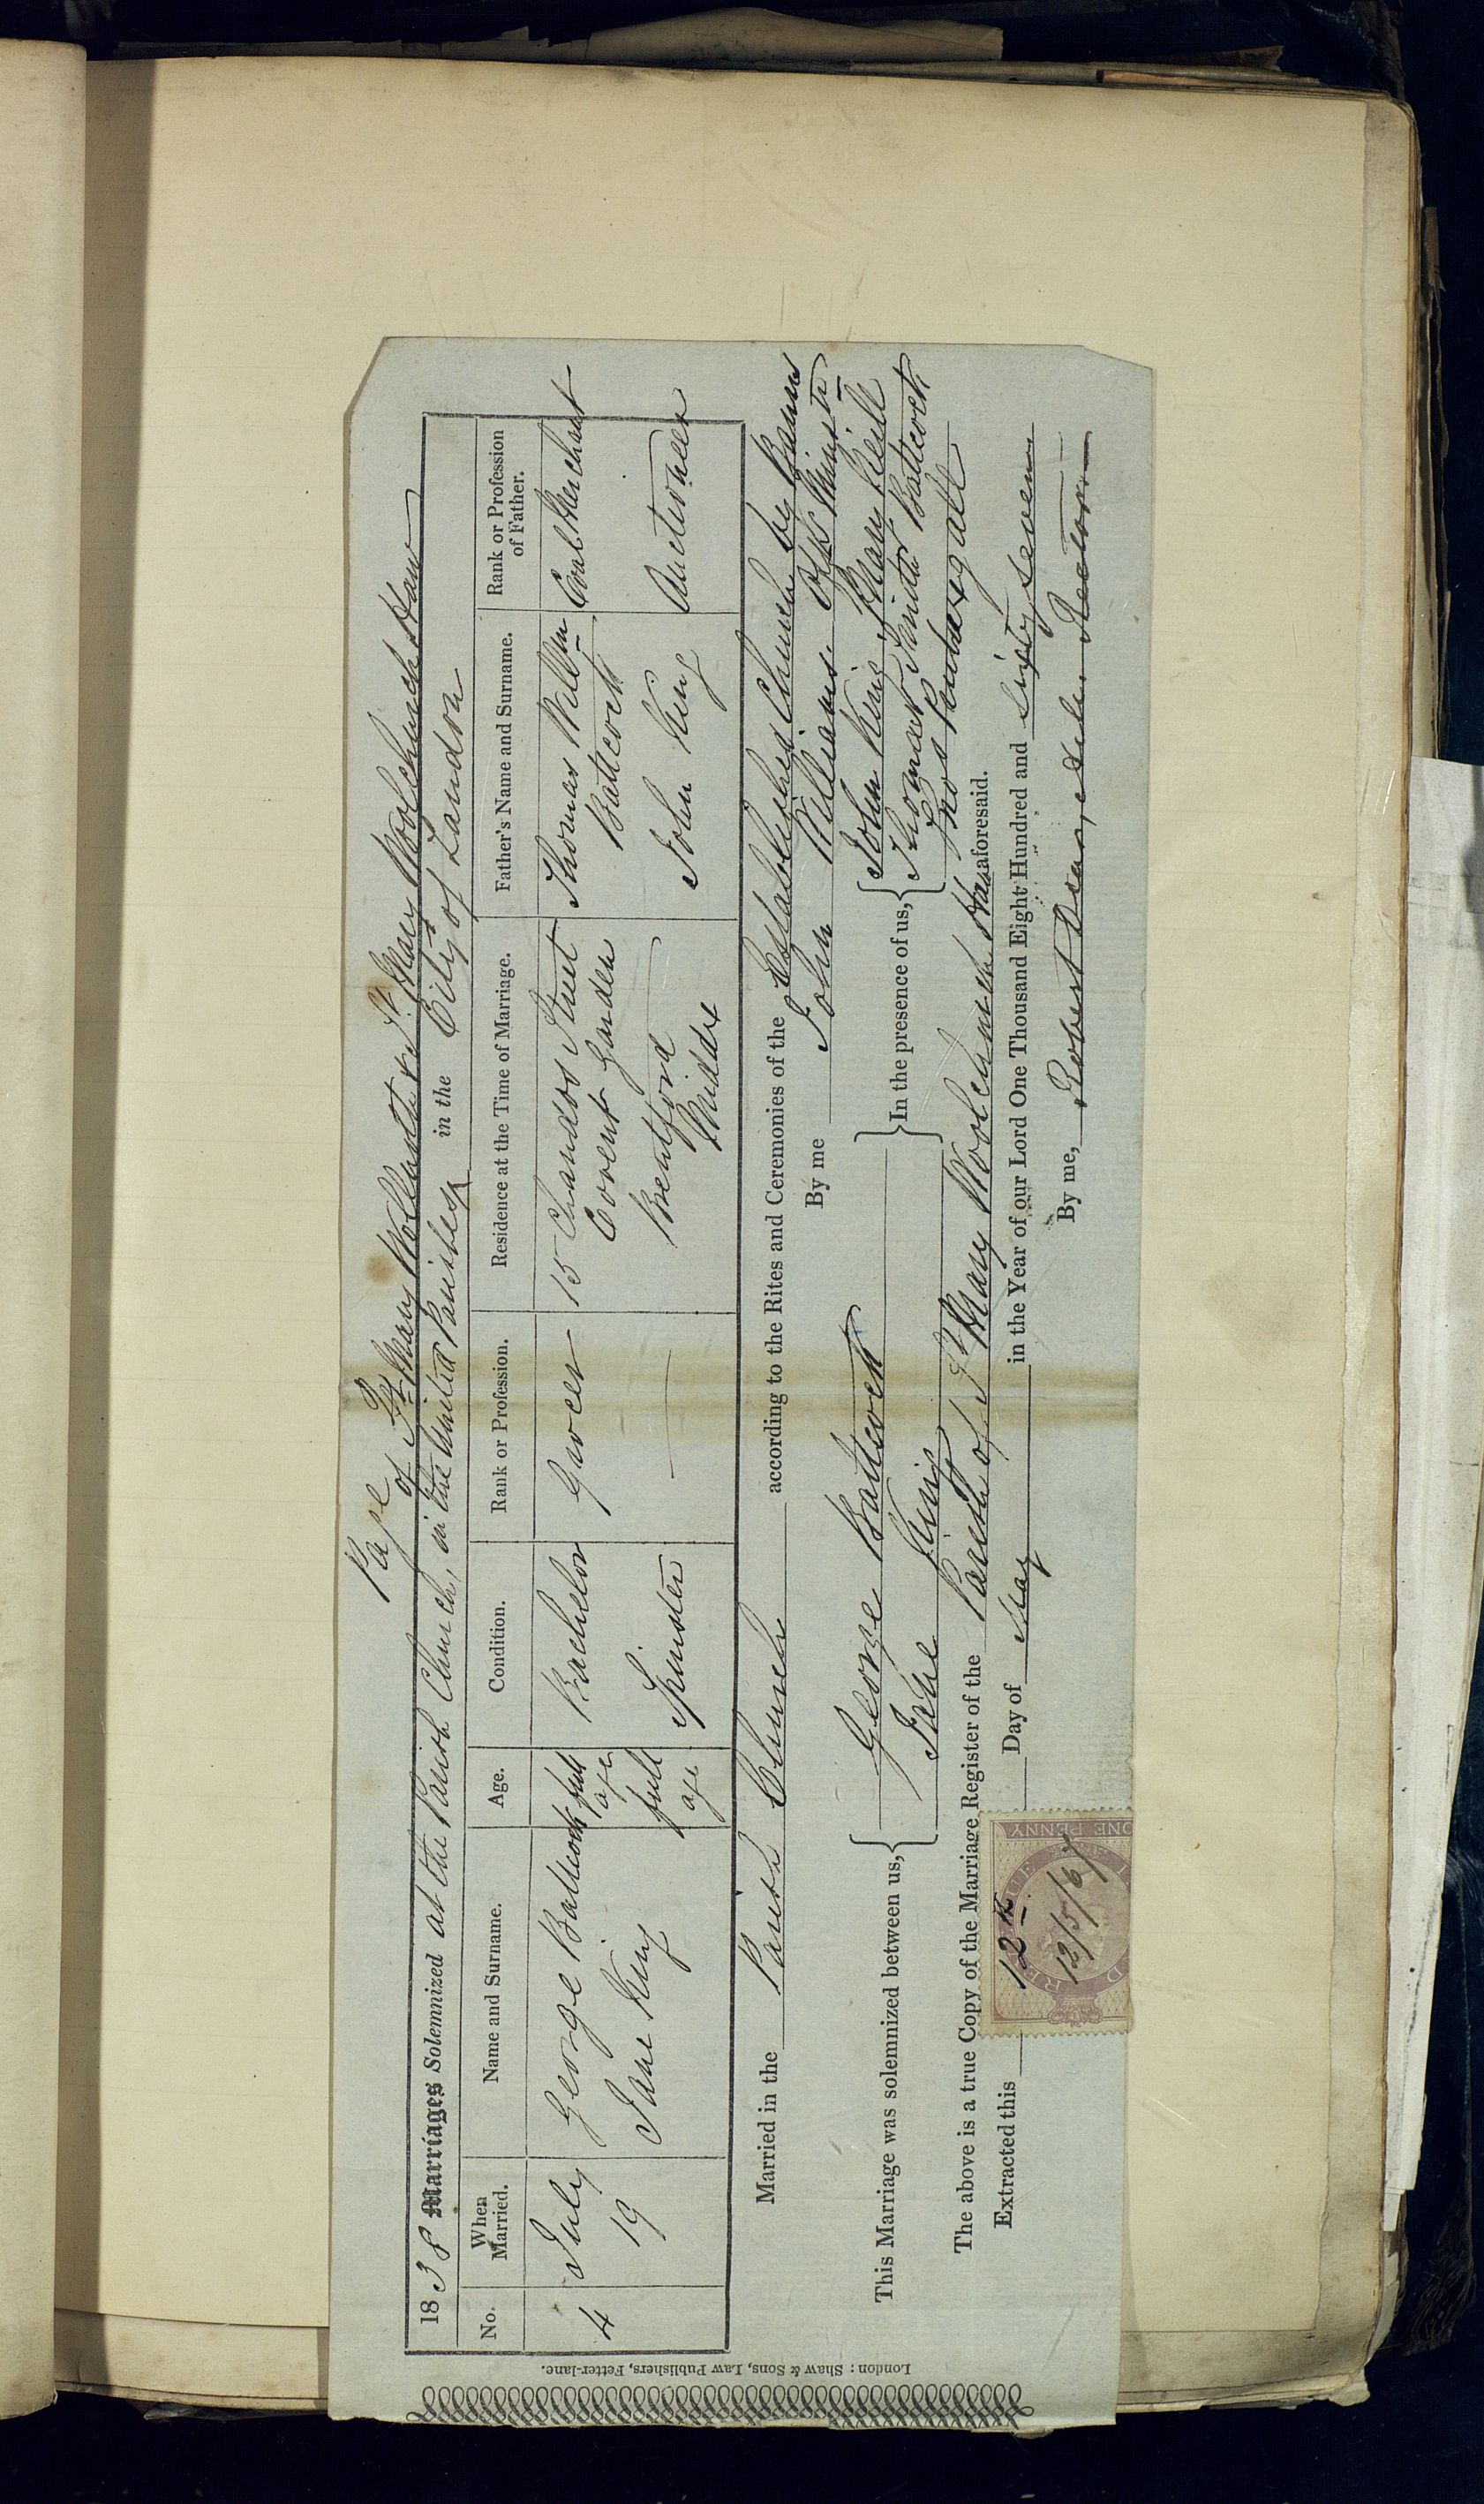 Page
of St Mary Woolnoth & St Mary Woolchurch Haw
1838 Marriages Solemnized at the Parish Church, in the United Parishes in the City of London
No. When Married. Name and Surname. Age. Condition. Rank or Profession. Residence at the Time of Marriage. Father's Name and Surname. Rank or Profession of Father.
4 July 19 George Battcock full age Bachelor Grocer 15 Chandos Street Covent Garden Thomas Willm Battcock Coal Merchant
Jane King full age Spinster — Brentford Middx John King Auctioneer
Married in the Parish Church according to the Rites and Ceremonies of the Established Church by Banns
By me John Williams Ministr
This Marriage was solemnized between us, { George Battcock
Jane King } In the presence of us, { John King, Mary
Thomas Smith Battcock
Thos
The above is a true Copy of the Marriage Register of the Parish of St Mary Woolchurch Haw aforesaid.
Extracted this 12th Day of May in the Year of our Lord One Thousand Eight Hundred and Sixty seven.
By me, Robert Dear, Rector.
12/5/67
ONE PENNY
London: Shaw & Sons, Law Publishers, Fetter-lane.